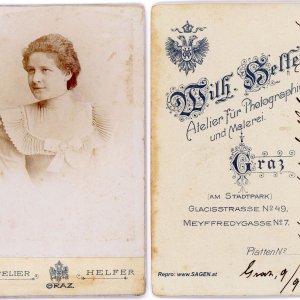 TELIER HELFER
GRAZ.
Wilh. Helfe
Atelier für Photographie
und Malerei.
Graz
(AM STADTPARK)
GLACISSTRASSE No 49,
MEYFFREDYGASSE No 7.
Platten No
Repro: www.SAGEN.at
Graz, 9/